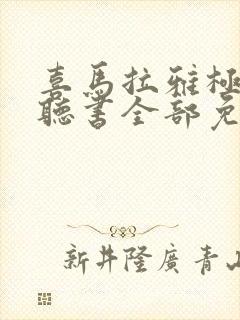 喜馬拉雅極
聽書全部免
新井隆廣青山